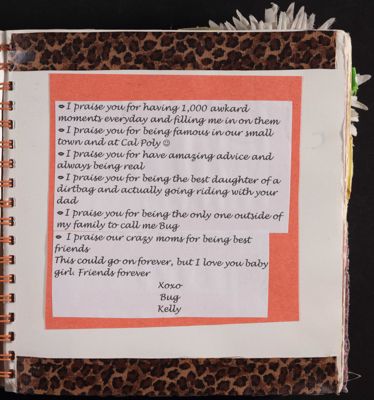 I praise you for having 1,000 awkard
moments everyday and filling me in on them
I praise you for being famous in our small
town and at Cal Poly ☺
I praise you for have amazing advice and
always being real
I praise you for being the best daughter of a
dirtbag and actually going riding with your
dad
I praise you for being the only one outside of
my family to call me Bug
I praise our crazy moms for being best
friends
This could go on forever, but I love you baby
girl. Friends forever
Xoxo
Bug
Kelly